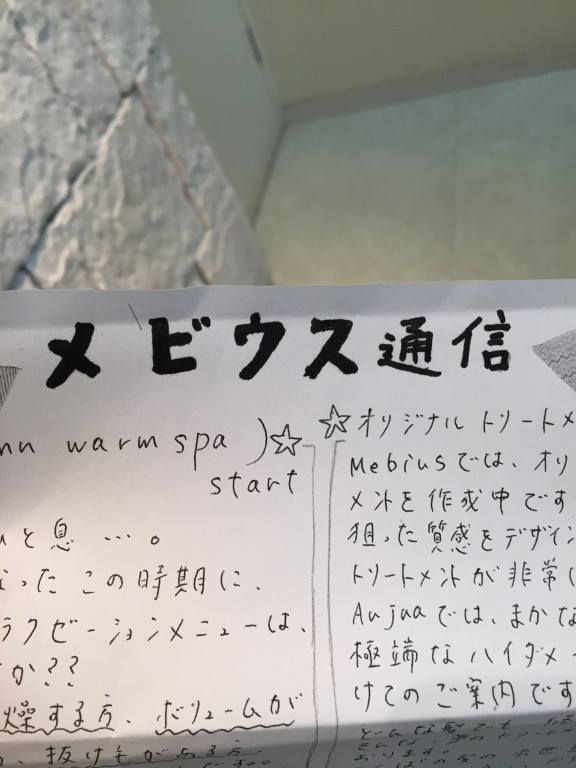 メビウス通信
warm spa )☆
start
と息 …。
ったこの時期に、
ラクゼーションメニューは、
か??
燥する方、ボリュームが
、抜け毛がある方
☆オリジナルトリートメ
Mebiusでは、オリ
メントを作成中です
狙った質感をデザイン
トリートメントが非常に
Aujuaでは、まかな
極端なハイダメー
けてのご案内です